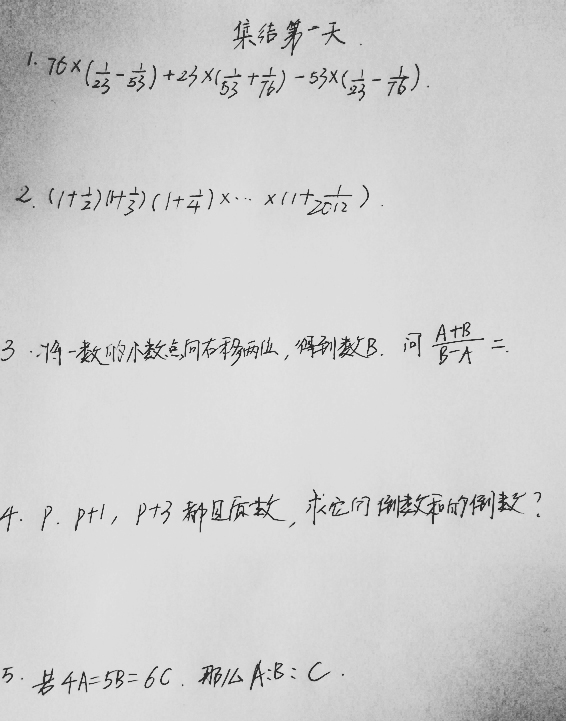 集结第一天.
1. 76×(1/23-1/53)+23×(1/53+1/76)-53×(1/23-1/76).
2. (1+1/2)(1+1/3)(1+1/4)×…×(1+1/2012).
3. 将一数的小数点向右移两位,得到数B. 问 (A+B)/(B-A) =.
4. P. P+1, P+3 都是质数,求它们倒数和的倒数?
5. 若4A=5B=6C. 那么A:B:C.